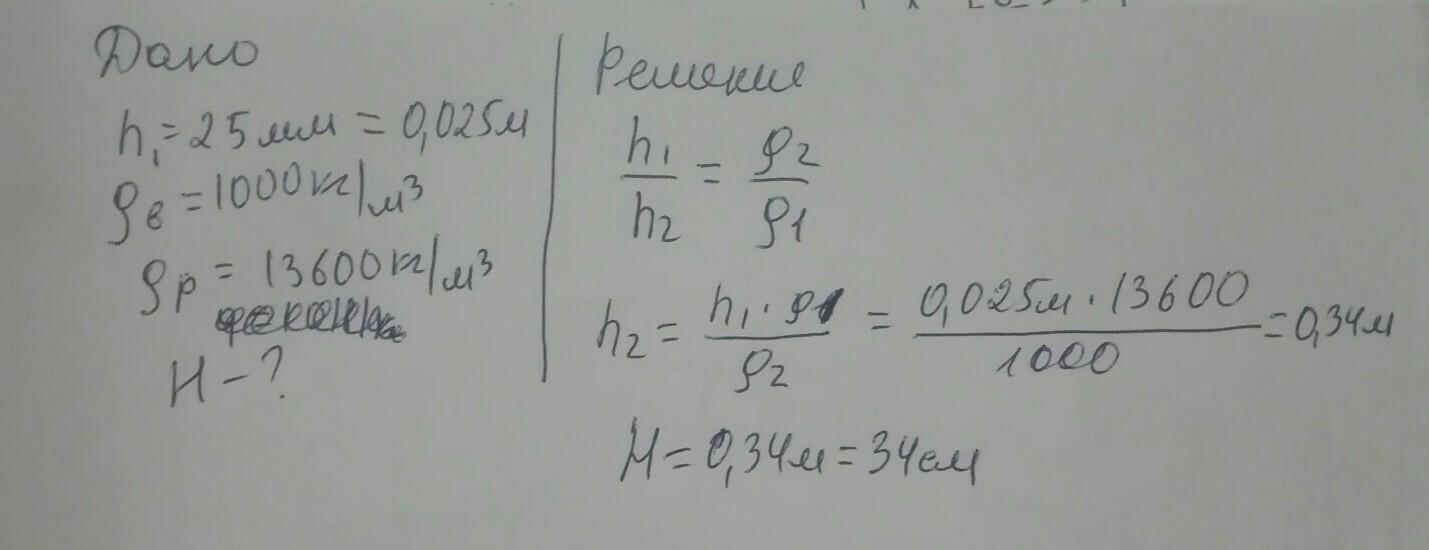 Дано
h₁ = 25 мм = 0,025м
ρв = 1000 кг/м³
ρр = 13600 кг/м³
H - ?
Решение
h₁/h₂ = ρ₂/ρ1
h₂ = h₁·ρ1/ρ₂ = 0,025м·13600/1000 = 0,34м
H = 0,34м = 34см